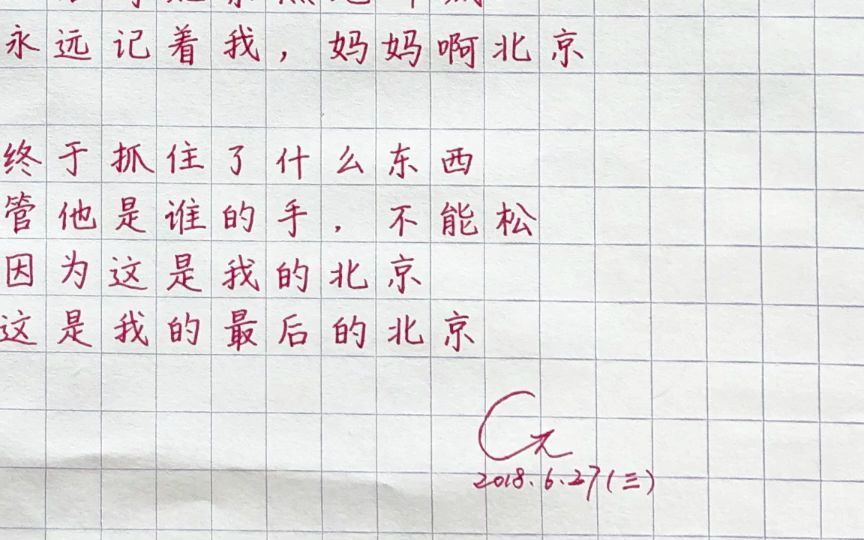 永远记着我，妈妈啊北京
终于抓住了什么东西
管他是谁的手，不能松
因为这是我的北京
这是我的最后的北京
2018.6.27(三)